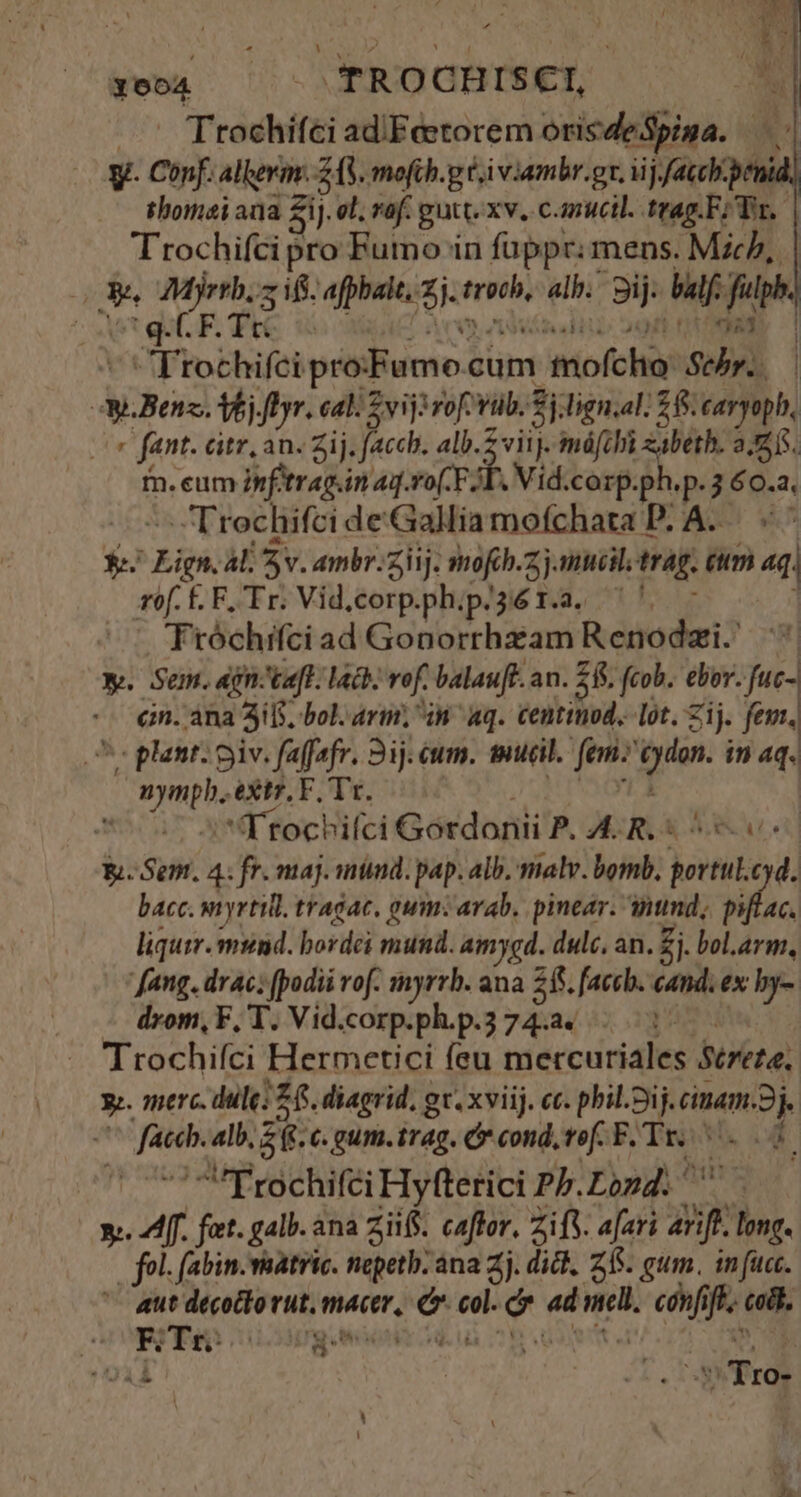 1004 TROCHISCI,
Trochiſci ad Fœtorem oris de Spina.
℞. Conf. alkerm. ℥ ß. moſch. gr. iv. ambr. gr. iij. ſacch. penid.
thomæi ana ℥ij. ol. roſ. gutt. xv. c. mucil. trag. F. Tr.
Trochiſci pro Fumo in ſuppr. mens. Mich.
℞. Myrrh. ʒ iß. aſphalt. ʒj. troch. alb. ℈ij. balſ. ſulph.
q. ſ. F. Tr.
Trochiſci pro Fumo cum moſcho Schr.
℞. Benz. ℔j. ſtyr. cal. ℥vij. roſ. rub. ℥j. lign. al. ℥ß. caryoph.
ſant. citr. an. ʒij. ſacch. alb. ℥viij. moſchi zibeth. a, ʒß.
m. cum inf. trag. in aq. roſ. F. T. Vid. corp. ph. p. 360. a.
Trochiſci de Gallia moſchata P. A.
℞. Lign. al. ʒv. ambr. ʒiij. moſch. ʒj. mucil. trag. cum aq.
roſ. f. F. Tr. Vid. corp. ph. p. 361. a.
Tróchiſci ad Gonorrhæam Renodæi.
℞. Sem. agn. caſt. lact. roſ. balauſt. an. ℥ß. ſcob. ebor. ſuc-
cin. ana ʒiß. bol. arm. in aq. centinod. lot. ʒij. ſem.
plant. ℈iv. ſaſſafr. ℈ij. cum. mucil. ſem. cydon. in aq.
nymph. extr. F. Tr.
Trochiſci Gordonii P. A. R.
℞. Sem. 4. fr. maj. mund. pap. alb. malv. bomb. portul. cyd.
bacc. myrtill. tragac. gum. arab. pinear. mund. piſtac.
liquir. mund. hordei mund. amygd. dulc. an. ʒj. bol. arm.
ſang. drac. ſpodii roſ. myrrh. ana ℥ß. ſacch. cand. ex hy-
drom. F. T. Vid. corp. ph. p. 374. a.
Trochiſci Hermetici ſeu mercuriales Strete.
℞. merc. dulc. ℥ß. diagrid. gr. xviij. cc. phil. ℈ij. cinam. ℈j.
ſacch. alb. ℥ß. c. gum. trag. & cond. roſ. F. Tr.
Trochiſci Hyſterici Ph. Lond.
℞. Aſſ. fœt. galb. ana ʒiiß. caſtor. ʒiß. aſari ariſt. long.
fol. ſabin. matric. nepeth. ana ʒj. dict. ʒß. gum. in ſucc.
aut decocto rut. macer. & col. & ad mell. conſiſt. coct.
F. Tr.
Tro-